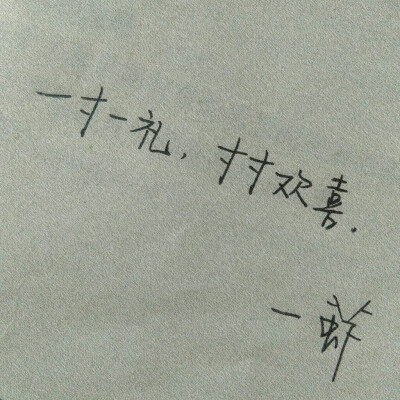 一寸一礼，寸寸欢喜.
一蛘